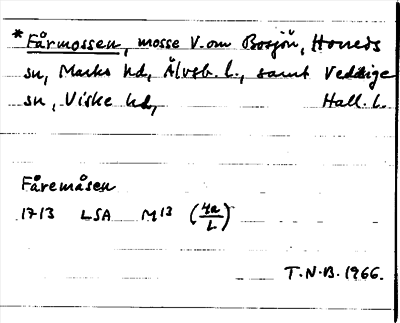 * Fårmossen, mosse V. om Bosjön, Horreds
sn, Marks hd, Älvsb. l., samt Veddige
sn, Viske hd, Hall. l.
Fåremåsen
1713 LSA M13 (4a/L)
T.N.B. 1966.